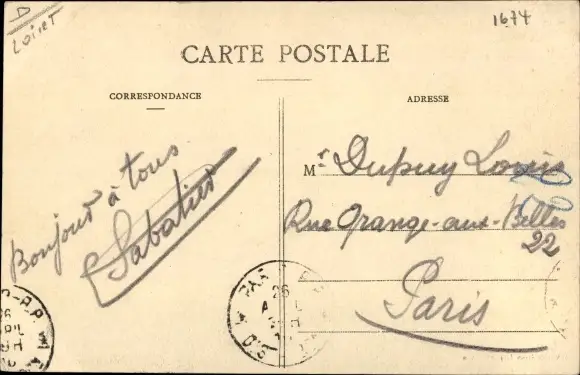 Loiret
1674
CARTE POSTALE
CORRESPONDANCE
ADRESSE
Bonjour à tous
Sabatier
Mr Dupuy Louis
Rue Grange-aux-Belles
22
Paris